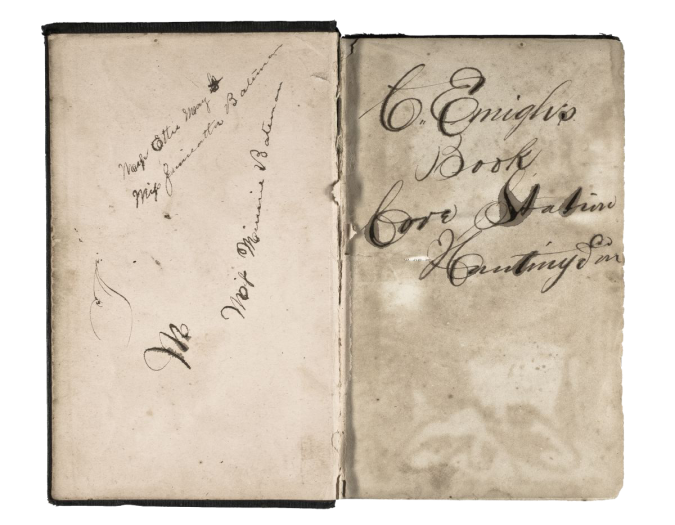 Miss Ettie May
Miss Juniatta Bateman
Miss Minnie Bateman
M
C. Emigh's
Book
Cove Station
Huntingdon